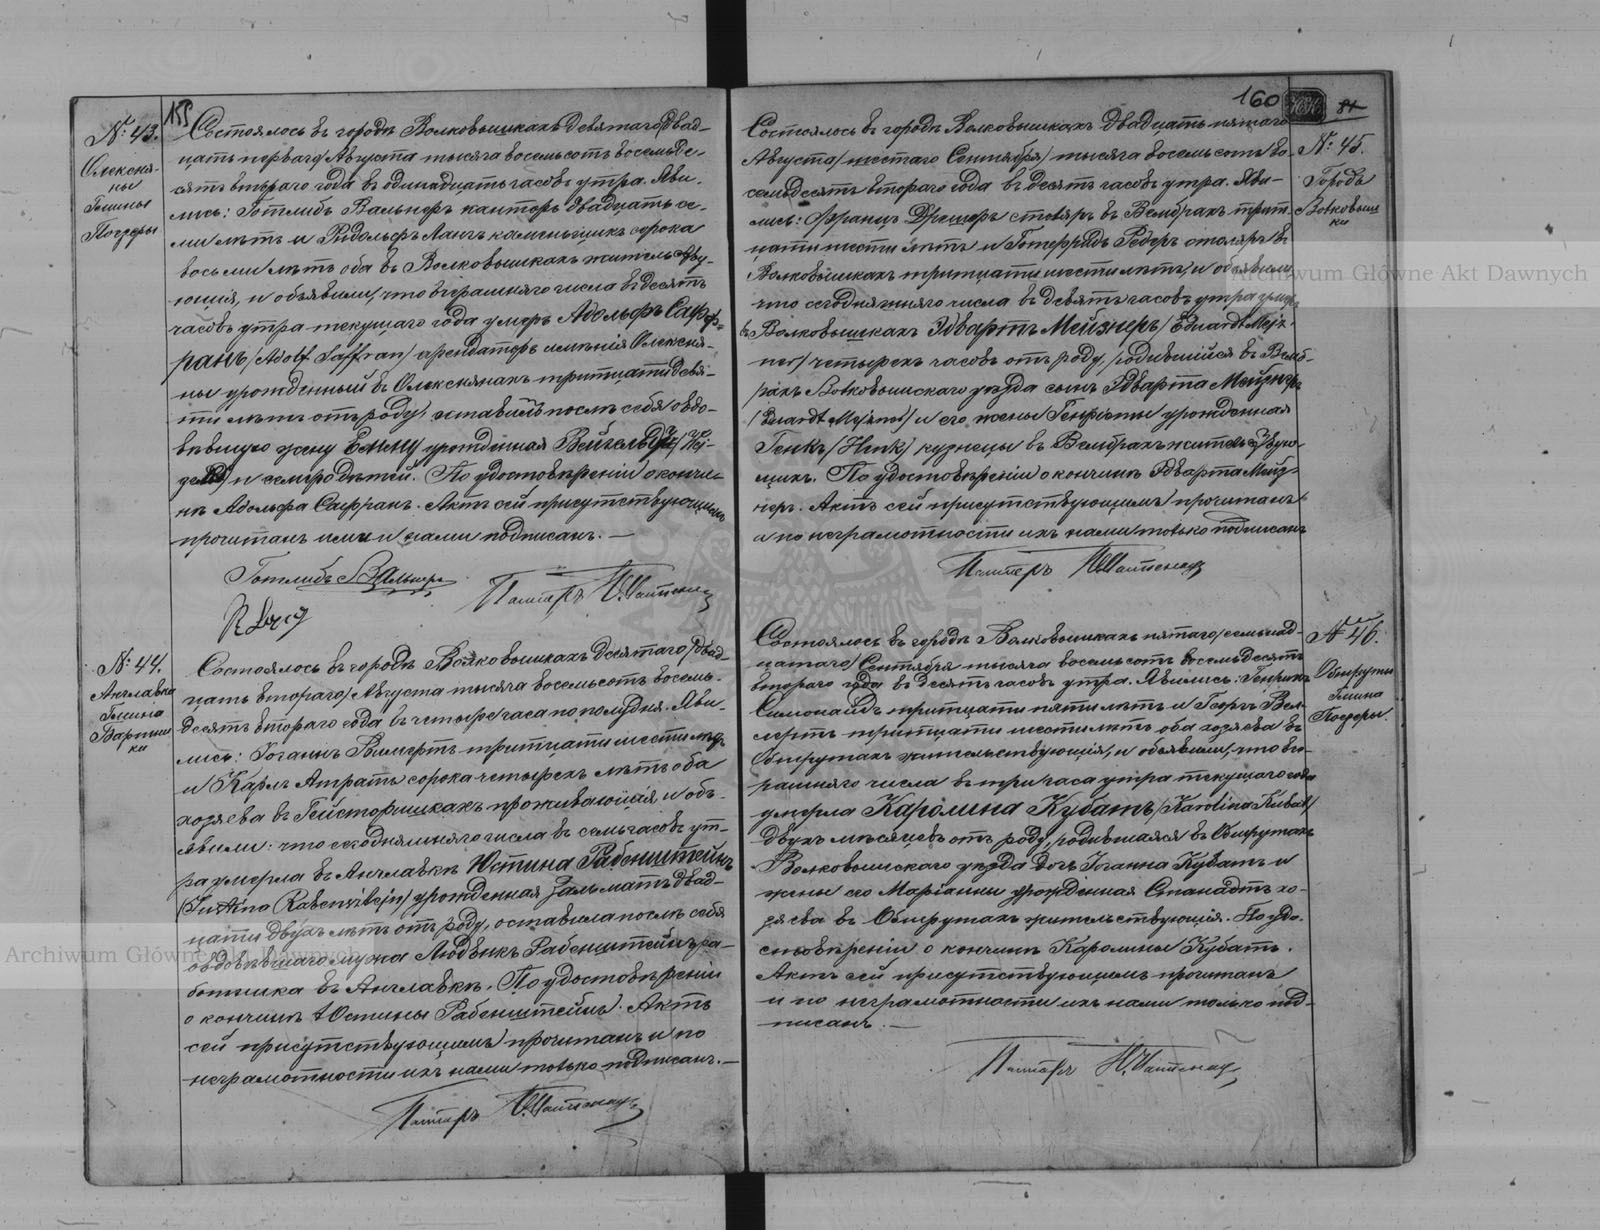 155
№ 43.
Олекскя-
ны
Гмины
Погеры
Состоялось въ городѣ Волковышкахъ девятаго/двад-
цать перваго/Августа тысяча восемьсотъ восемьде-
сятъ втораго года въ одинадцать часовъ утра. Яви-
лись: Готлибъ Вальнеръ канторъ двадцать се-
ми лѣтъ и Рудольфъ Лангъ каменьщикъ сорока
восьми лѣтъ оба въ Волковышкахъ жительству-
ющія, и объявили, что вчерашняго числа въ десять
часовъ утра текущаго года умеръ Адольфъ Саф-
ранъ/Adolf Saffran/арендаторъ имѣнія Олекскя-
ны урожденный въ Олекскянахъ тритцати девя-
ти лѣтъ отъ роду, оставивъ послѣ себя овдо-
вѣвшую жену Емму урожденная
и семеро дѣтей. По удостовѣреніи о кончи-
нѣ Адольфа Сафранъ. Актъ сей присутствующимъ
прочитанъ ими и нами подписанъ. —
Готлибъ Вальнеръ
Пасторъ
№ 44.
Англавка
Гмина
Варшишки
Состоялось въ городѣ Волковышкахъ десятаго/двад-
цать втораго/Августа тысяча восемьсотъ восемь-
десятъ втораго года въ четыре часа по полудня. Яви-
лись: Іоганъ Вилертъ тритцати шести лѣтъ
и Карлъ Атратъ сорока четырехъ лѣтъ оба
хозяева въ Гейсторишкахъ проживающія и объ-
явили: что сегодняшняго числа въ семь часовъ ут-
ра умерла въ Англавкѣ Юстина Рабенштейнъ
/Justina Rabensztejn/урожденная Зальматъ двад-
цати двухъ лѣтъ отъ роду, оставила послѣ себя
овдовѣвшаго мужа Людвикъ Рабенштейнъ ра-
ботника въ Англавкѣ. По удостовѣреніи
о кончинѣ Юстины Рабенштейнъ. Актъ
сей присутствующимъ прочитанъ и по
неграмотности ихъ нами только подписанъ. —
Пасторъ
160
81
№ 45.
Городъ
Волковыш-
ки
Состоялось въ городѣ Волковышкахъ двадцать пятаго
Августа/шестаго Сентября/тысяча восемьсотъ во-
семьдесятъ втораго года въ десять часовъ утра. Яви-
лись: Францъ Дрешеръ столяръ въ Велбрахъ трит-
цати шести лѣтъ и Готфридъ Редеръ столяръ въ
Волковышкахъ тритцати шести лѣтъ, и объявили,
что сегодняжняго числа въ девять часовъ утра умеръ
въ Волковышкахъ Эдвартъ Мейзнеръ/Eduardt Mejz-
ner/четырехъ часовъ отъ роду, родившійся въ Велб-
рахъ Волковышскаго уѣзда сынъ Эдварта Мейзнеръ
/Eduardt Mejzner/и его жены Генріэты урожденная
Генкъ/Henk/кузнецы въ Велбрахъ жительствую-
щихъ. По удостовѣреніи о кончинѣ Эдварта Мейз-
неръ. Актъ сей присутствующимъ прочитанъ
а по неграмотности ихъ нами только подписанъ
Пасторъ
№ 46.
Обшруты
Гмина
Погеры.
Состоялось въ городѣ Волковышкахъ пятаго/семьнад-
цатаго/Сентября тысяча восемьсотъ восемьдесятъ
втораго года въ десять часовъ утра. Явились: Генрикъ
Симонайдъ тритцати пяти лѣтъ и Георгъ Вел-
лертъ тритцати шести лѣтъ оба хозяева въ
Обшрутахъ жительствующія, и объявили, что вче-
рашняго числа въ три часа утра текущаго года
умерла Каролина Кубатъ/Karolina Kubat/
двухъ мѣсяцевъ отъ роду, родившаяся въ Обшрутахъ
Волковышскаго уѣзда дочь Іоганна Кубатъ и
жены его Маріанны урожденная Станадтъ хо-
зяева въ Обшрутахъ жительствующія. По удо-
стовѣреніи о кончинѣ Каролины Кубатъ.
Актъ сей присутствующимъ прочитанъ
и по неграмотности ихъ нами только под-
писанъ. —
Пасторъ
Archiwum Główne Akt Dawnych
Archiwum Główne Akt Dawnych